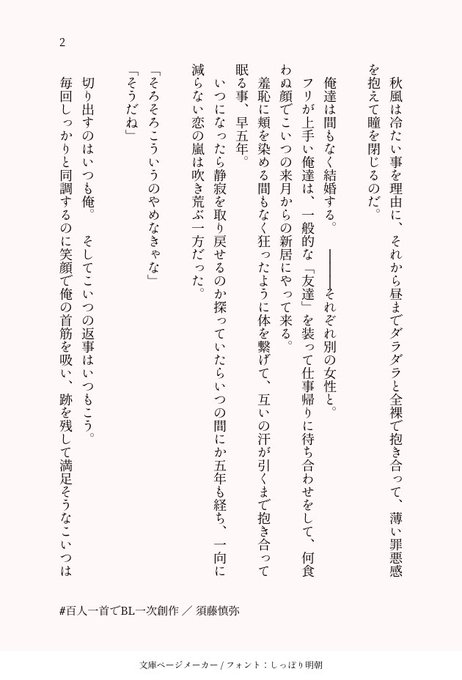 2
秋風は冷たい事を理由に、それから昼までダラダラと全裸で抱き合って、薄い罪悪感
を抱えて瞳を閉じるのだ。
俺達は間もなく結婚する。 ――――それぞれ別の女性と。
フリが上手い俺達は、一般的な「友達」を装って仕事帰りに待ち合わせをして、何食
わぬ顔でこいつの来月からの新居にやって来る。
羞恥に頬を染める間もなく狂ったように体を繋げて、互いの汗が引くまで抱き合って
眠る事、早五年。
いつになったら静寂を取り戻せるのか探っていたらいつの間にか五年も経ち、一向に
減らない恋の嵐は吹き荒ぶ一方だった。
「そろそろこういうのやめなきゃな」
「そうだね」
切り出すのはいつも俺。 そしてこいつの返事はいつもこう。
毎回しっかりと同調するのに笑顔で俺の首筋を吸い、跡を残して満足そうなこいつは
#百人一首でBL一次創作 ／ 須藤慎弥
文庫ページメーカー / フォント：しっぽり明朝